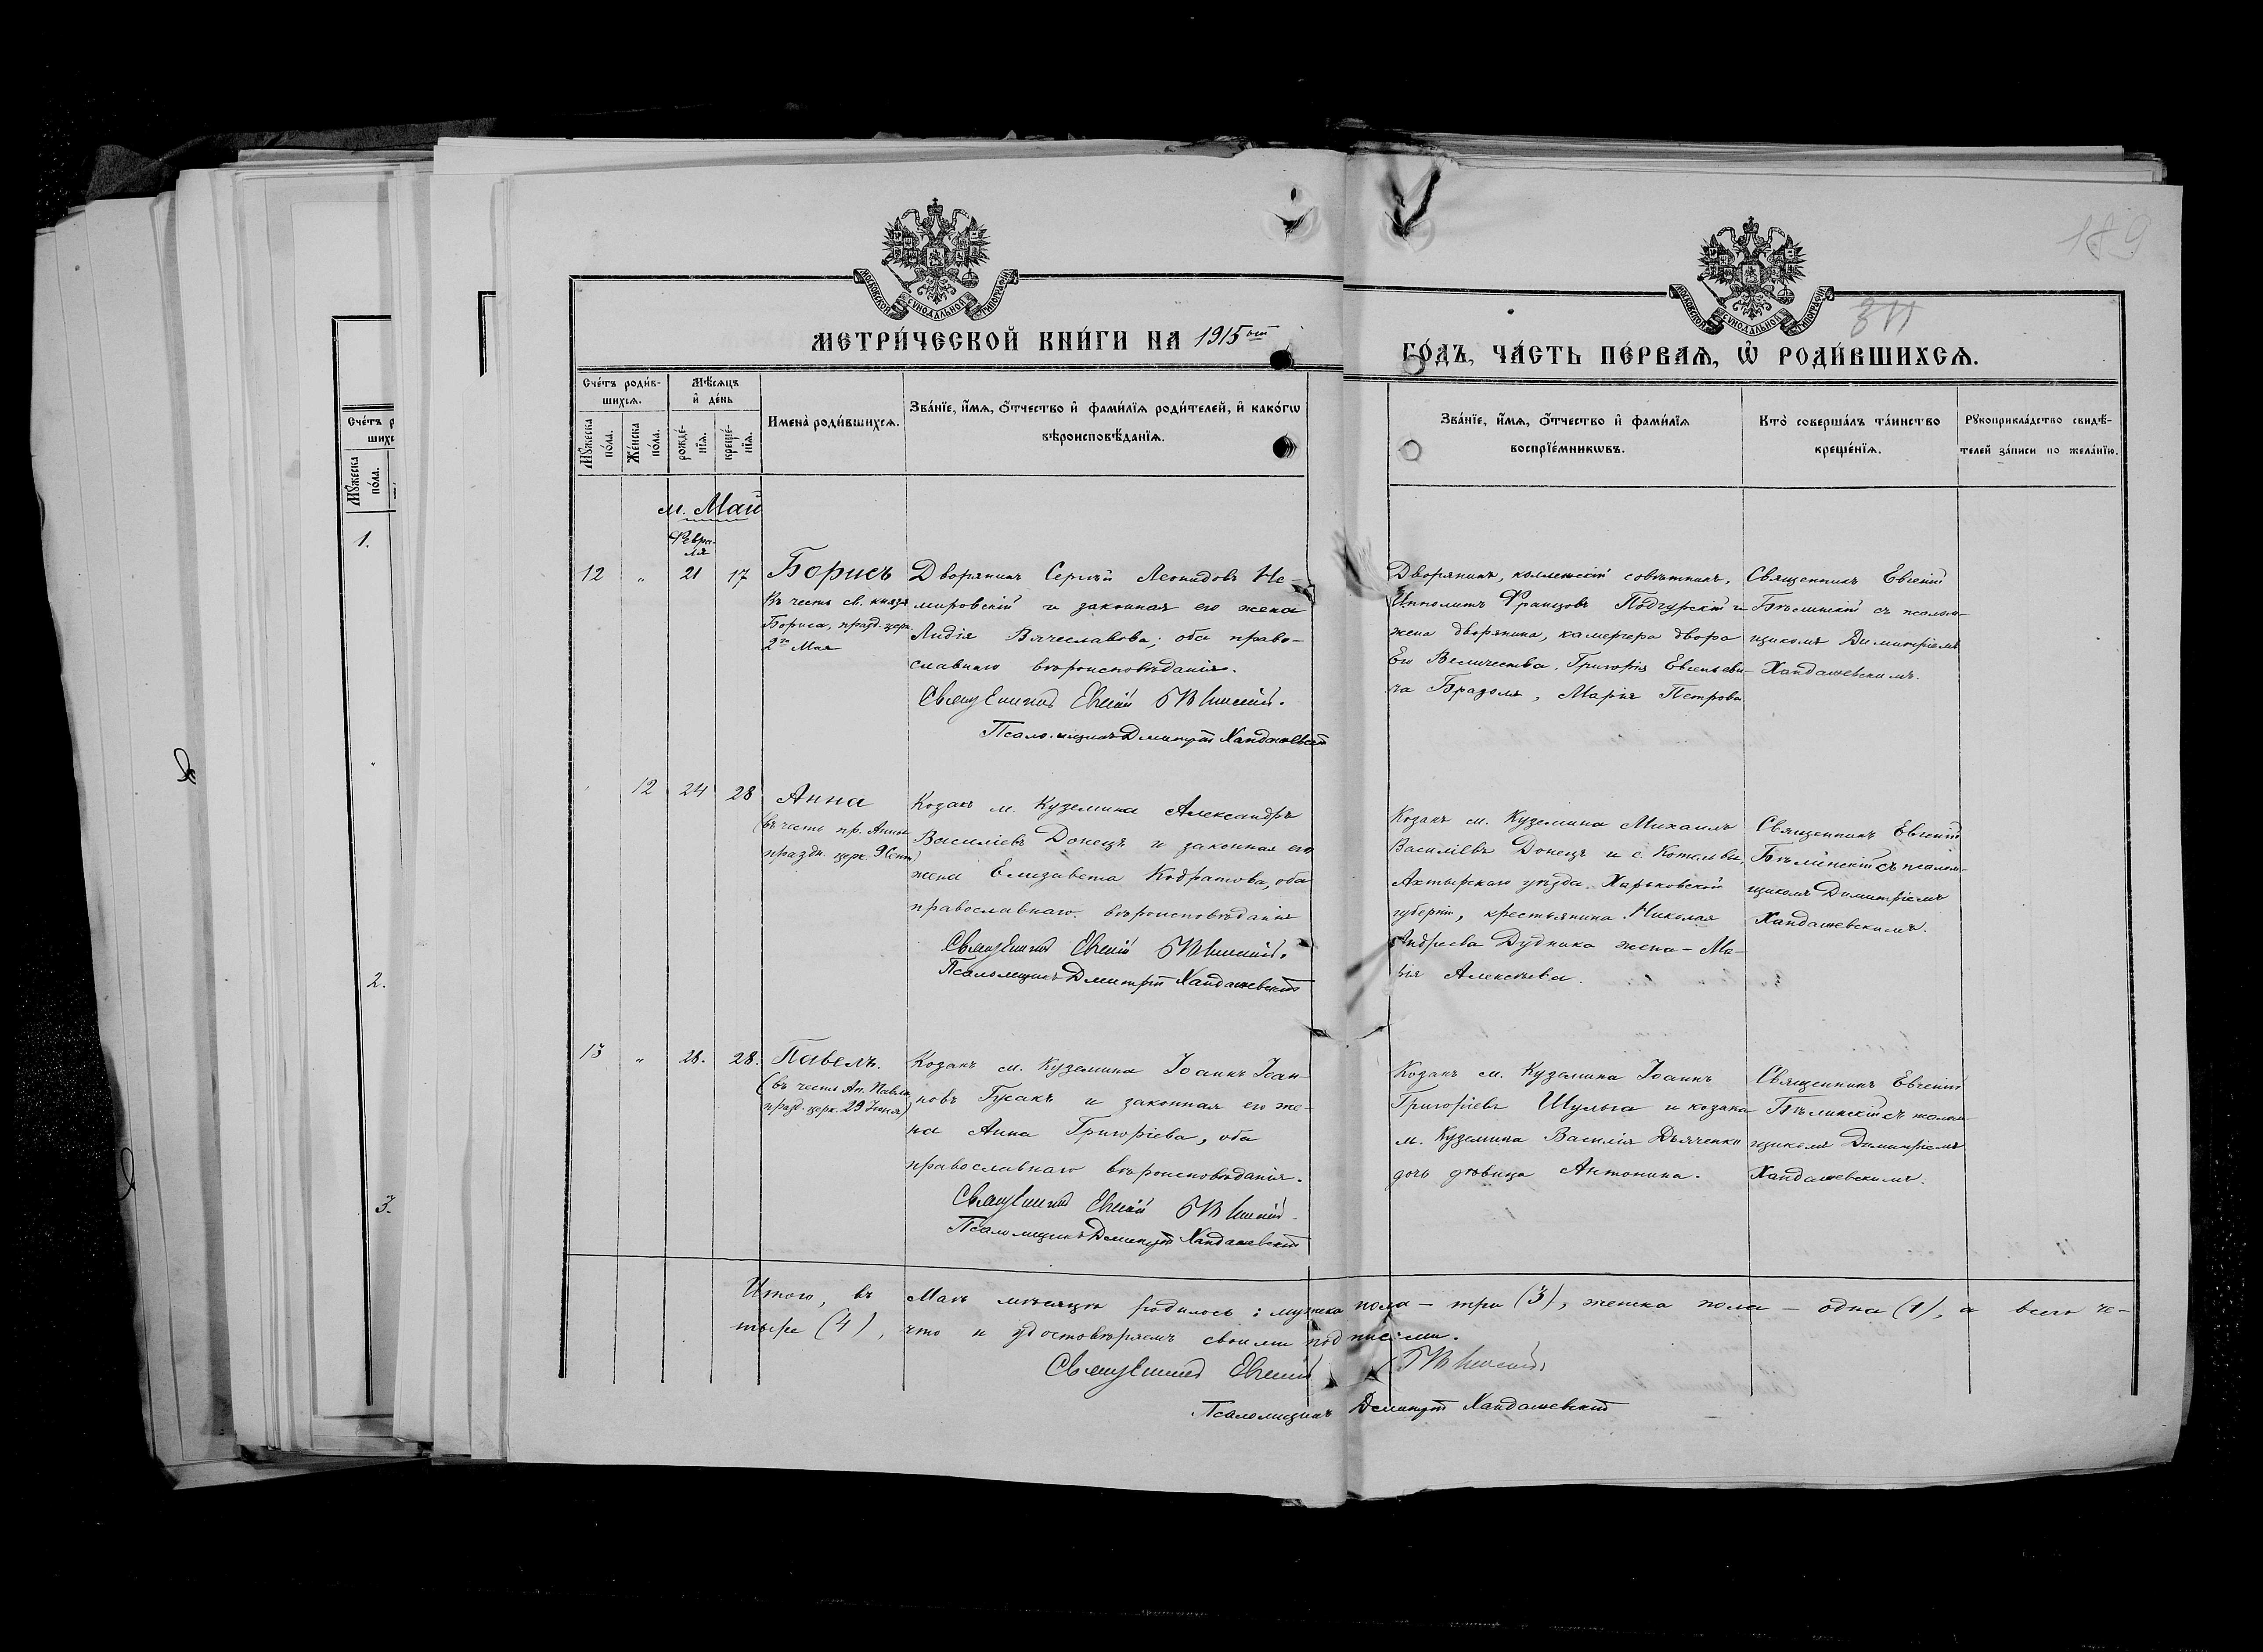 189
311
МОСКОВСКОЙ СѴНОДАЛЬНОЙ ТИПОГРАФІИ
МОСКОВСКОЙ СѴНОДАЛЬНОЙ ТИПОГРАФІИ
МЕТРИ́ЧЕСКОЙ КНИ́ГИ НА 1915 ый
ГО́ДЪ, ЧА́СТЬ ПЕ́РВАѦ, Ѡ҆ РОДИ́ВШИХСѦ.
Сче́тъ роди́в-
шихсѧ.
Мѣ́сѧцъ
и҆ де́нь
Мꙋ́жеска по́ла.
Же́нска по́ла.
рожде́-
нїѧ.
креще́-
нїѧ.
Имена̀ роди́вшихсѧ.
Зва́нїе, и҆́мѧ, ѻ҆́тчество и҆ фами́лїѧ роди́телей, и҆ како́гѡ
вѣроисповѣ́данїѧ.
Зва́нїе, и҆́мѧ, ѻ҆́тчество и҆ фами́лїѧ
воспрїе́мникѡвъ.
Кто̀ соверша́лъ та́инство
креще́нїѧ.
Рꙋкоприкла́дство свидѣ́-
телей за́писи по жела́нїю.
Сче́тъ р
шихс
Мꙋ́жеска
по́ла.
1.
2.
3.
м. Май
Февра-
ля
12 " 21 17 Борисъ
Въ честь св. князя
Бориса, празд. церк.
2го Мая
Дворянинъ Сергѣй Леонидовъ Не-
мировскій и законная его жена
Лидія Вячеславова; оба право-
славнаго вѣроисповѣданія.
Священникъ Евгеній Бѣлинскій.
Псаломщикъ Димитрій Хандажевскій
Дворянинъ, коллежскій совѣтникъ,
Ипполитъ Францовъ Подгурскій и
жена дворянина, камергера двора
Его Величества, Григорія Евгеньеви-
ча Бразоль, Марія Петрова
Священникъ Евгеній
Бѣлинскій съ псалом-
щикомъ Димитріемъ
Хандажевскимъ.
12 24 28 Анна
(въ честь пр. Анны
праздн. церк. 9 Сент)
Козакъ м. Куземина Александръ
Василіевъ Донецъ и законная его
жена Елизавета Кодратова, оба
православнаго вѣроисповѣданія
Священникъ Евгеній Бѣлинскій.
Псаломщикъ Димитрій Хандажевскій
Козакъ м. Куземина Михаилъ
Василіевъ Донецъ и с. Котельвы,
Ахтырскаго уѣзда, Харьковской
губерніи, крестьянина Николая
Андреева Дудника жена – Ма-
рія Алексѣева.
Священникъ Евгеній
Бѣлинскій съ псалом-
щикомъ Димитріемъ
Хандажевскимъ.
13 " 28. 28. Павелъ.
(въ честь Ап. Павла
празд. церк. 29 Іюня)
Козакъ м. Куземина Іоаннъ Іоан-
новъ Гусакъ и законная его же-
на Анна Григоріева, оба
православнаго вѣроисповѣданія.
Священникъ Евгеній Бѣлинскій.
Псаломщикъ Димитрій Хандажевскій
Козакъ м. Куземина Іоаннъ
Григоріевъ Шульга и козака
м. Куземина Василія Дьяченки
дочь дѣвица Антонина.
Священникъ Евгеній
Бѣлинскій съ псалом-
щикомъ Димитріемъ
Хандажевскимъ.
Итого, въ Маѣ мѣсяцѣ родилось: мужска пола – три (3), женска пола – одна (1), а всего че-
тыре (4), что и удостовѣряемъ своими подписями.
Священникъ Евгеній Бѣлинскій.
Псаломщикъ Димитрій Хандажевскій